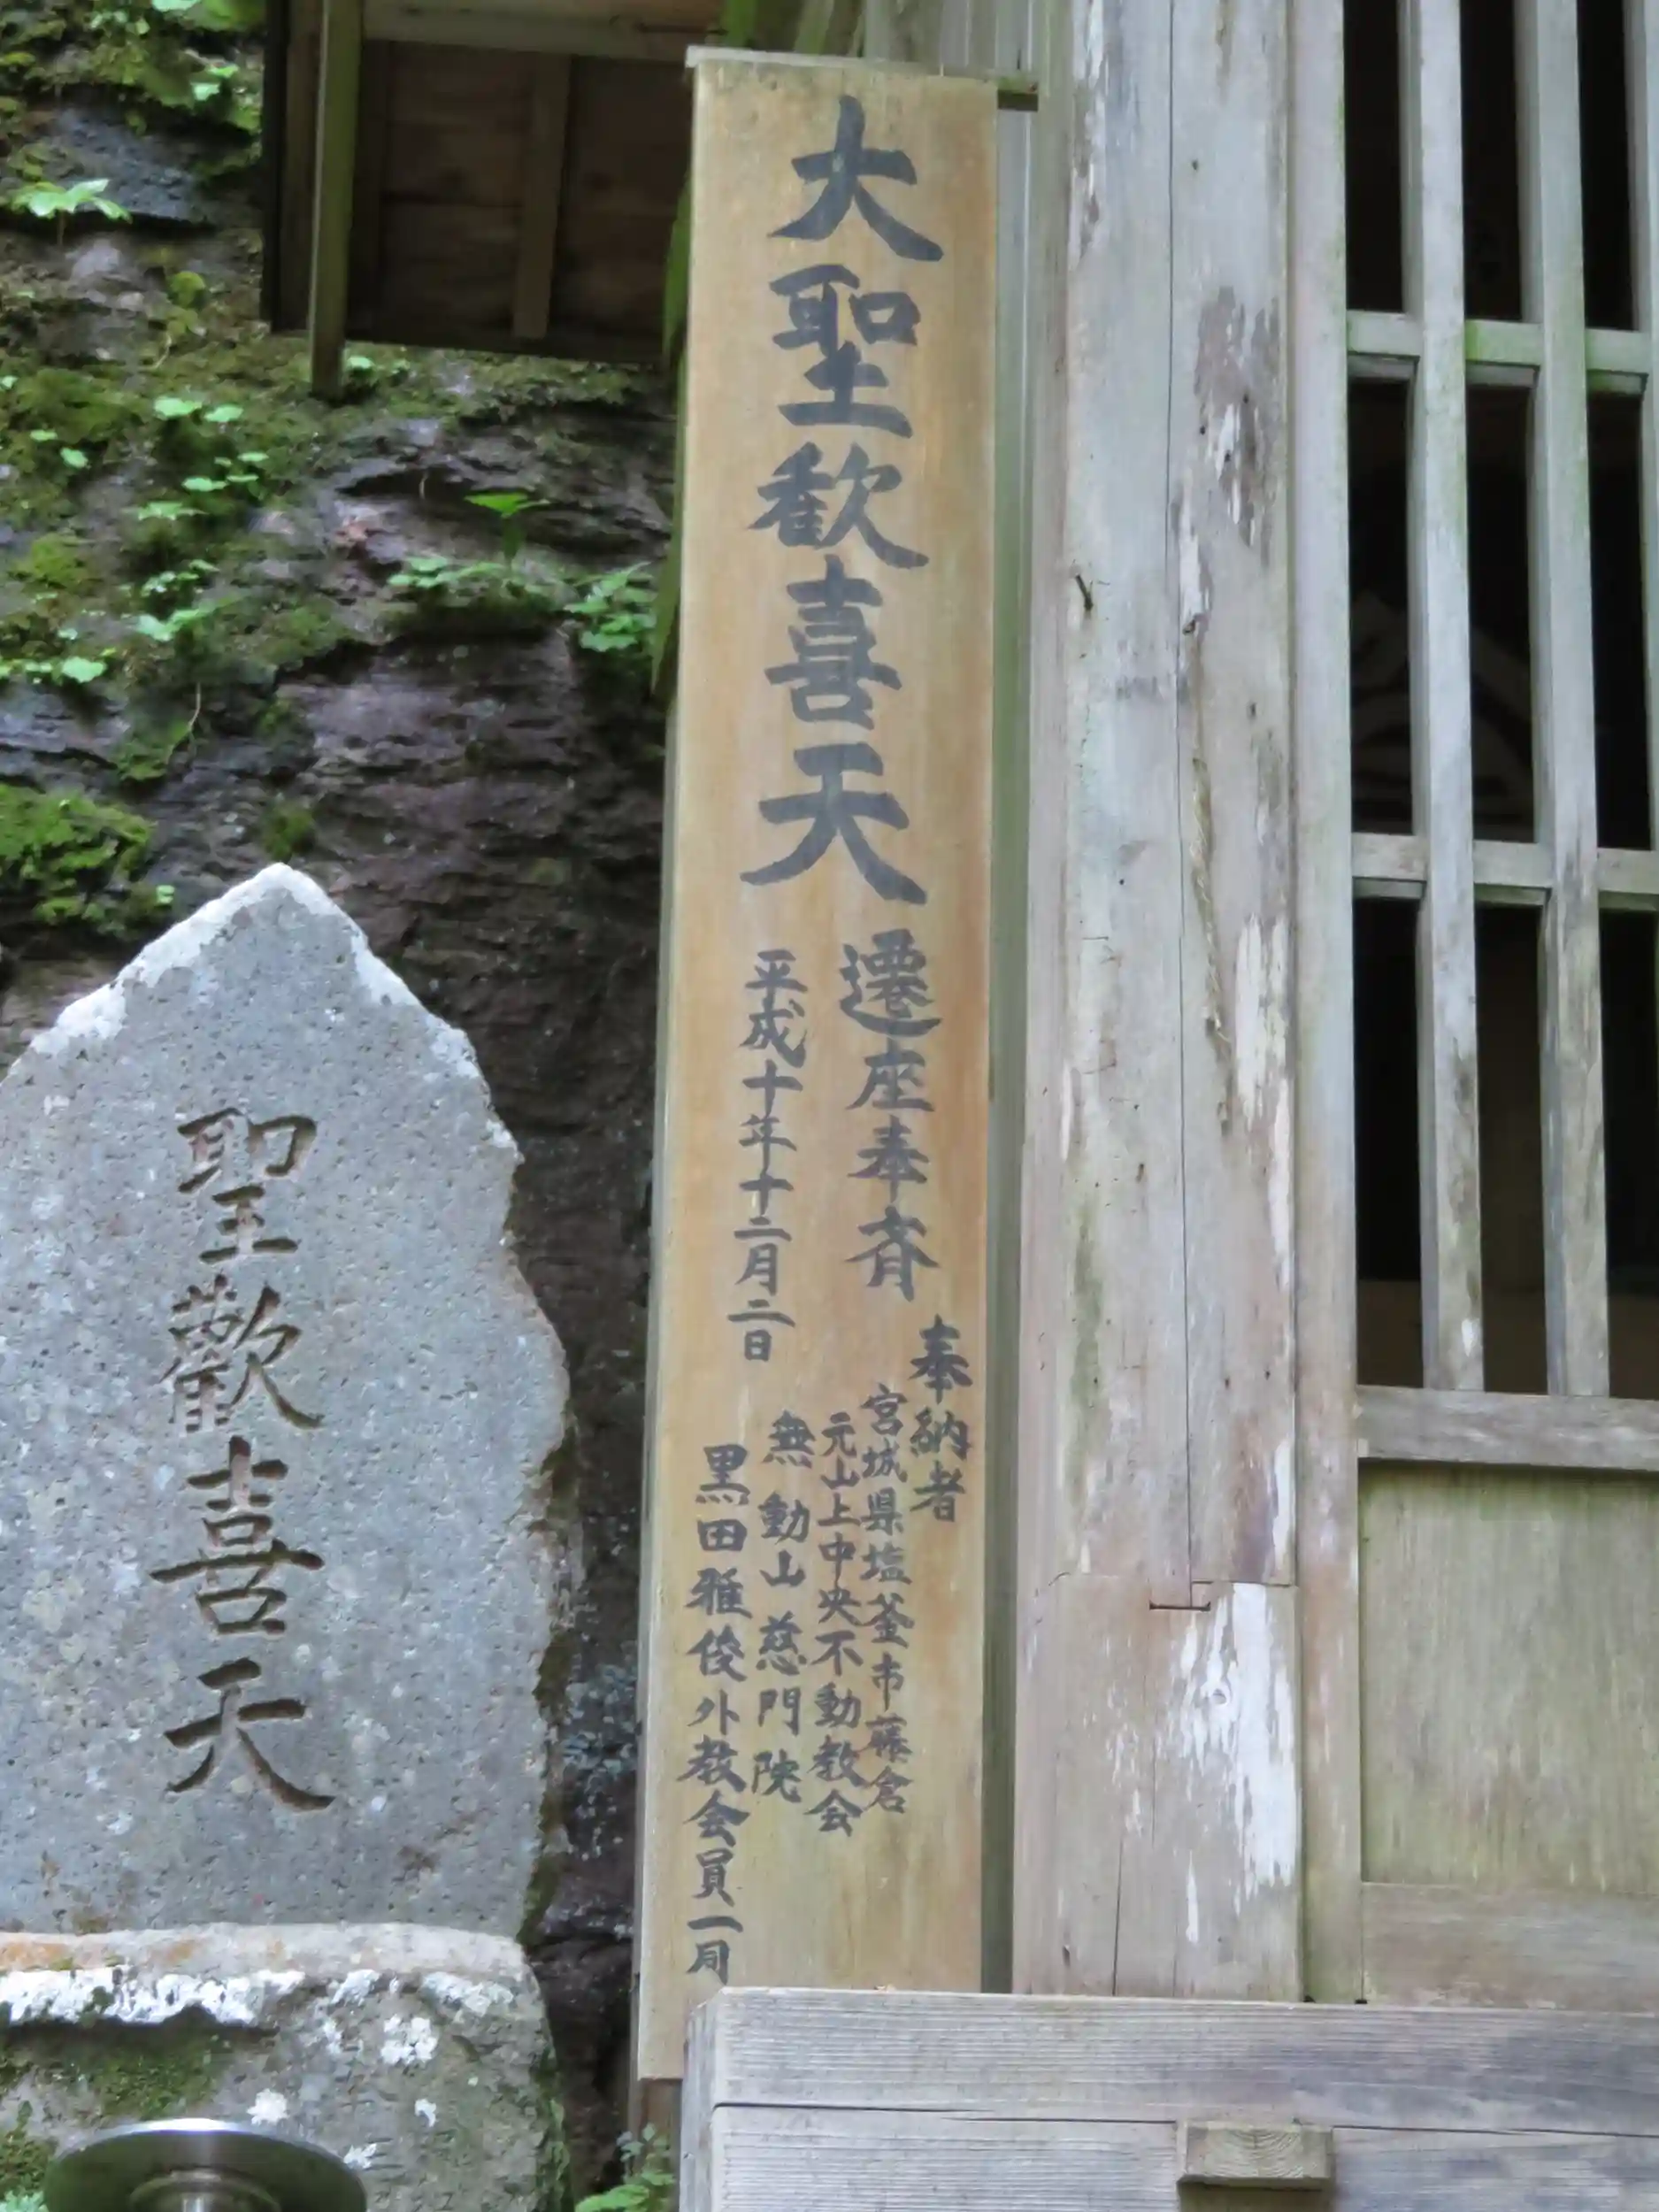 大聖歓喜天
遷座奉斉
平成十年十二月二日
奉納者
宮城県塩釜市藤倉
元山上中央不動教会
無動山慈門院
黒田雅俊外教会員一同
聖歡喜天